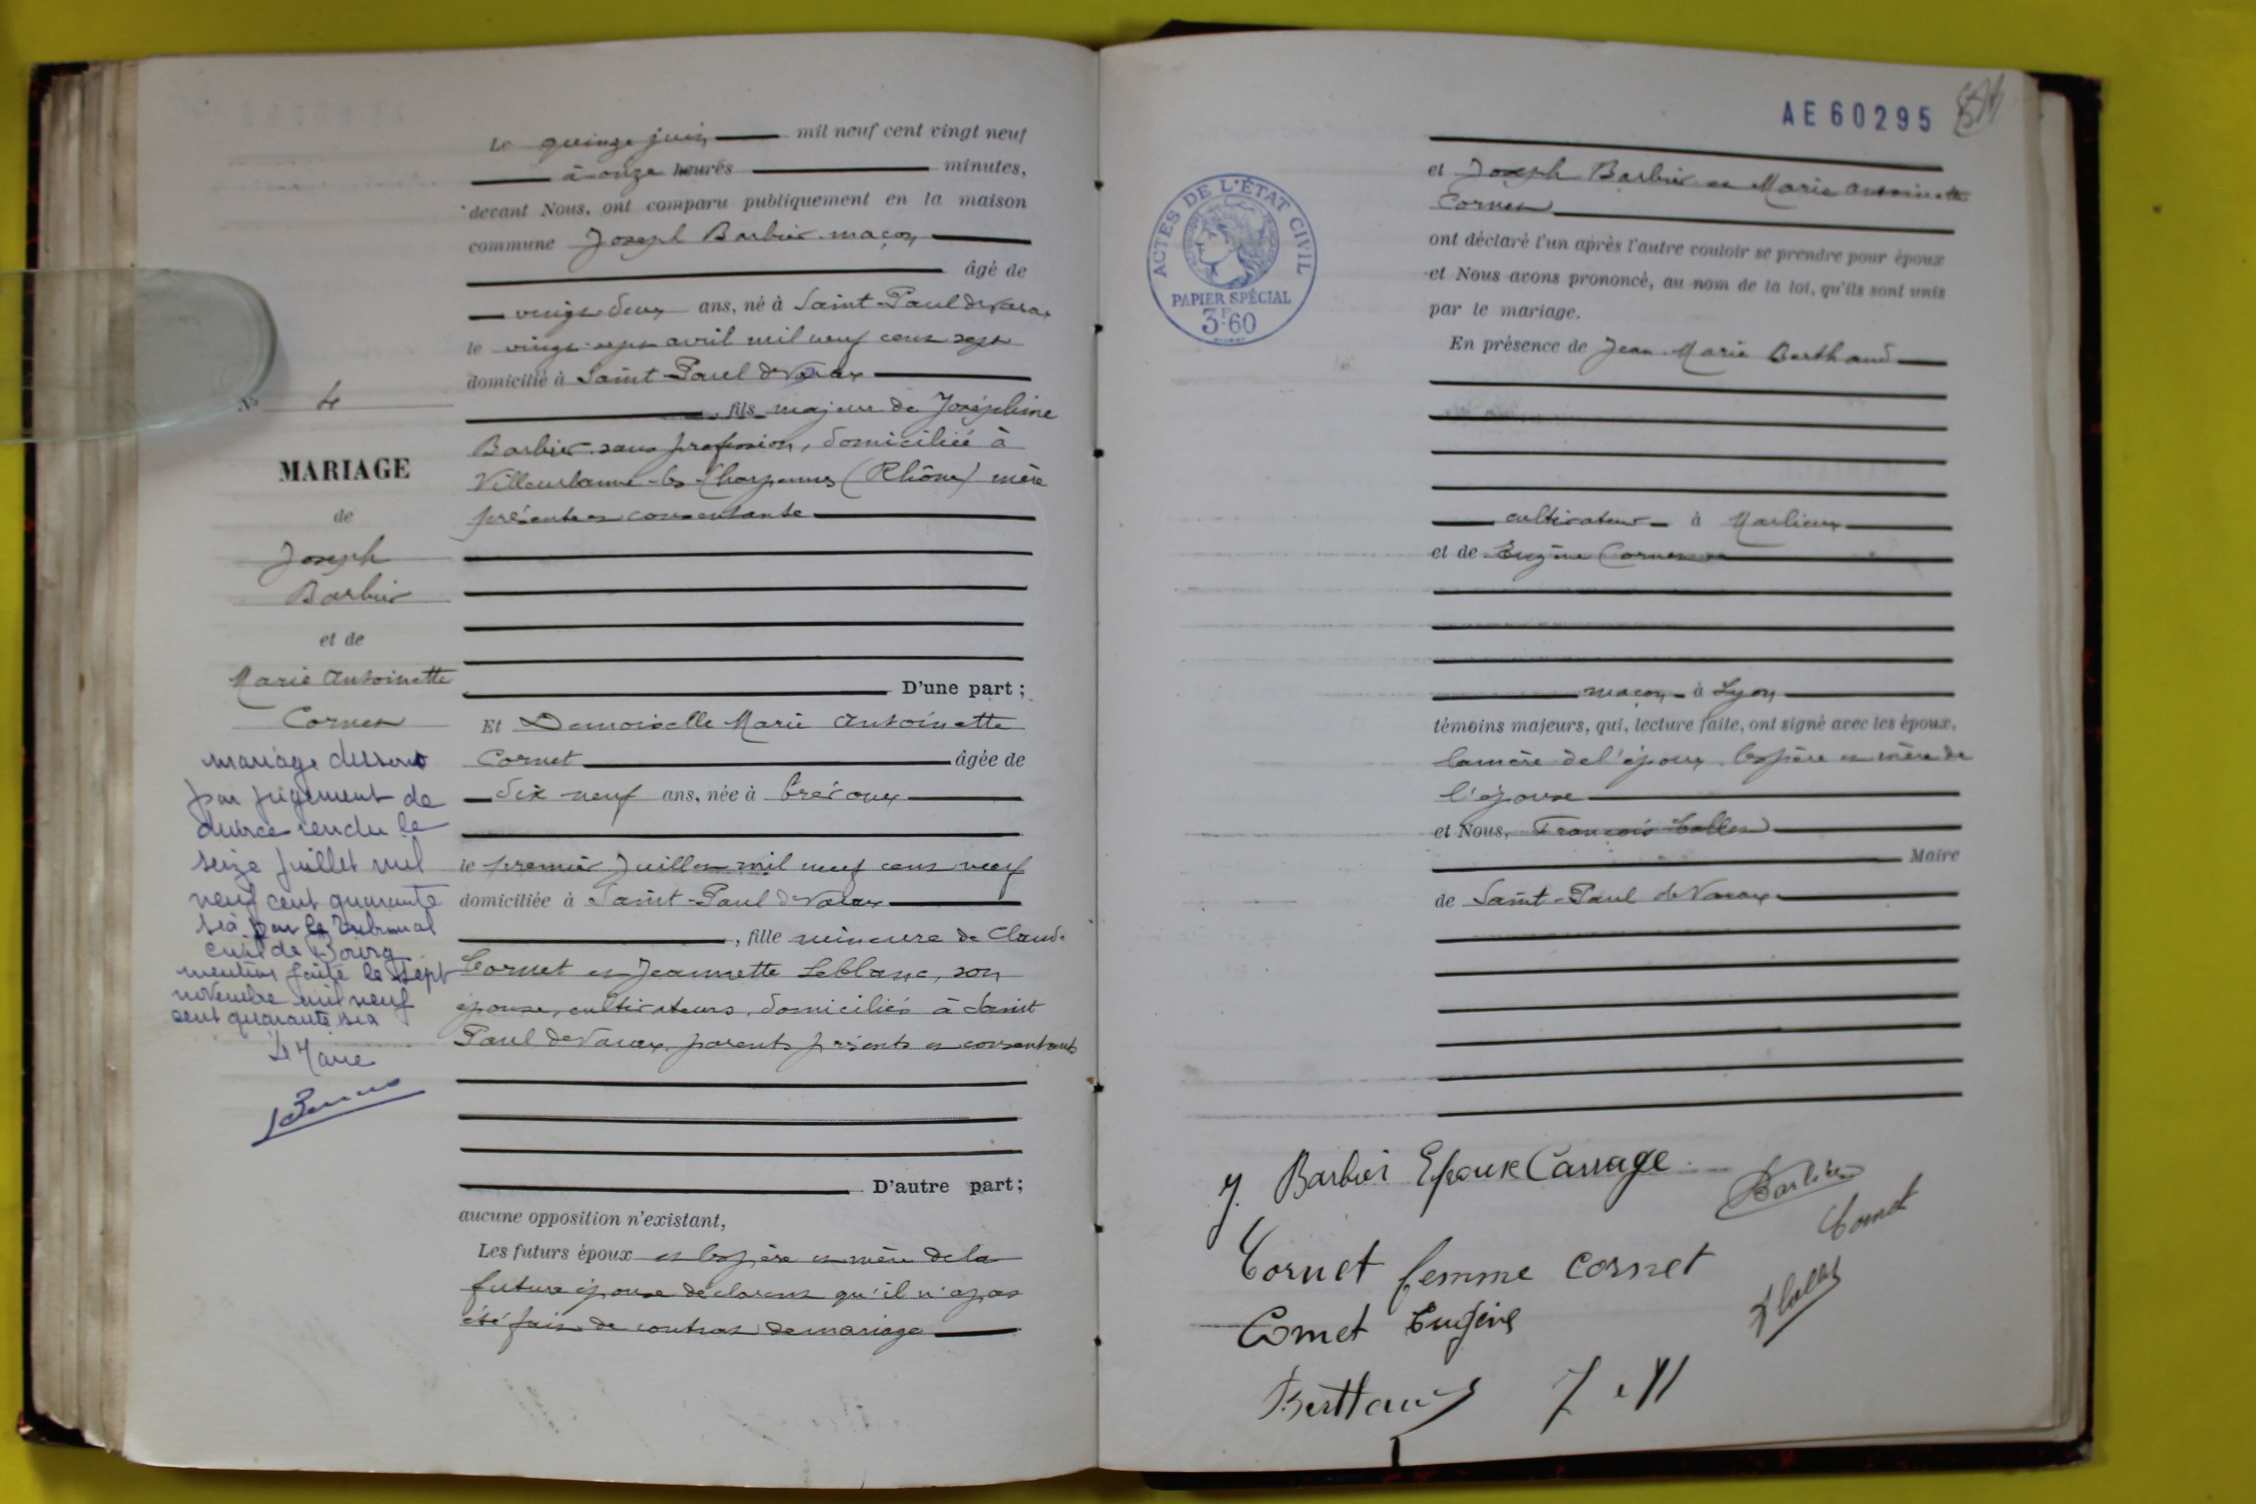 Le quinze juin mil neuf cent vingt neuf
à onze heures minutes,
devant Nous, ont comparu publiquement en la maison
commune Joseph Barbier maçon
âgé de
vingt deux ans, né à Saint-Paul de Varax
le vingt sept avril mil neuf cent sept
domicilié à Saint-Paul de Varax
, fils majeur de Joséphine
Barbier sans profession, domiciliée à
Villeurbanne les Charpennes (Rhône) mère
présente et consentante
D'une part ;
Et Demoiselle Marie Antoinette
Cornet âgée de
dix neuf ans, née à
le premier Juillet mil neuf cent neuf
domiciliée à Saint-Paul de Varax
, fille mineure de Claude
Cornet et Jeannette Leblanc, son
épouse, cultivateurs, domiciliés à Saint
Paul de Varax, parents présents et consentants
D'autre part ;
aucune opposition n'existant,
Les futurs époux et les père et mère de la
future épouse déclarent qu'il n'a pas
été fait de contrat de mariage
No 4
MARIAGE
de
Joseph
Barbier
et de
Marie Antoinette
Cornet
mariage dissout
par jugement de
divorce rendu le
seize juillet mil
neuf cent quarante
six par le tribunal
civil de Bourg
mention faite le sept
novembre mil neuf
cent quarante six
Le Maire
AE 60295
ACTES DE L'ÉTAT CIVIL
PAPIER SPÉCIAL
3F.60
et Joseph Barbier et Marie Antoinette
Cornet
ont déclaré l'un après l'autre vouloir se prendre pour époux
et Nous avons prononcé, au nom de la loi, qu'ils sont unis
par le mariage.
En présence de Jean-Marie Berthaud
cultivateur à Marlieux
et de Eugène Cornet
maçon à Lyon
témoins majeurs, qui, lecture faite, ont signé avec les époux,
la mère de l'époux, les père et mère de
l'épouse
et Nous, François
Maire
de Saint-Paul de Varax
J. Barbier Epoux Carrage
Barbier
Cornet
Cornet femme cornet
Cornet Eugène
Berthaud